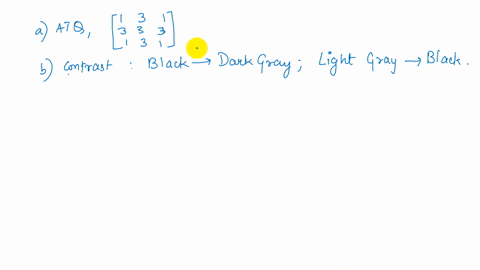 a) ATQ, [1 3 1
3 3 3
1 3 1]
b) Contrast : Black → Dark Gray ; Light Gray → Black.